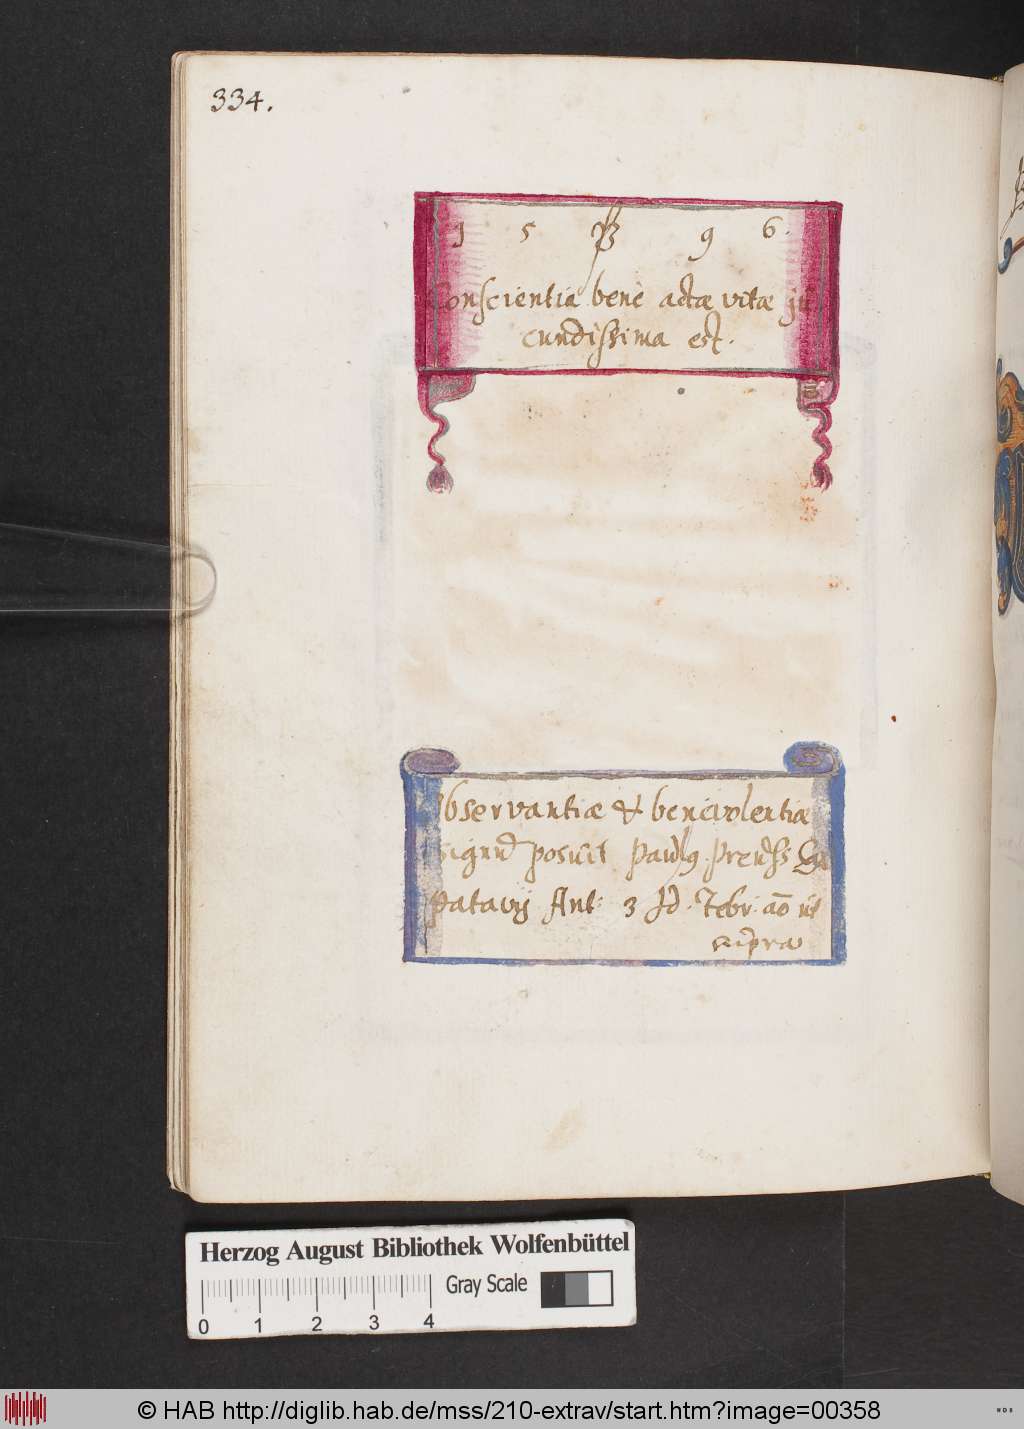 334.
1 5 96.
Conscientia benè actæ vitæ ju
cundissima est.
Observantiæ & benevolentiæ
signũ posuit Paulus Preuss
Patavij Ant: 3 Id. Febr. aõ ut
supra
Herzog August Bibliothek Wolfenbüttel
Gray Scale
0 1 2 3 4
© HAB http://diglib.hab.de/mss/210-extrav/start.htm?image=00358
HAB